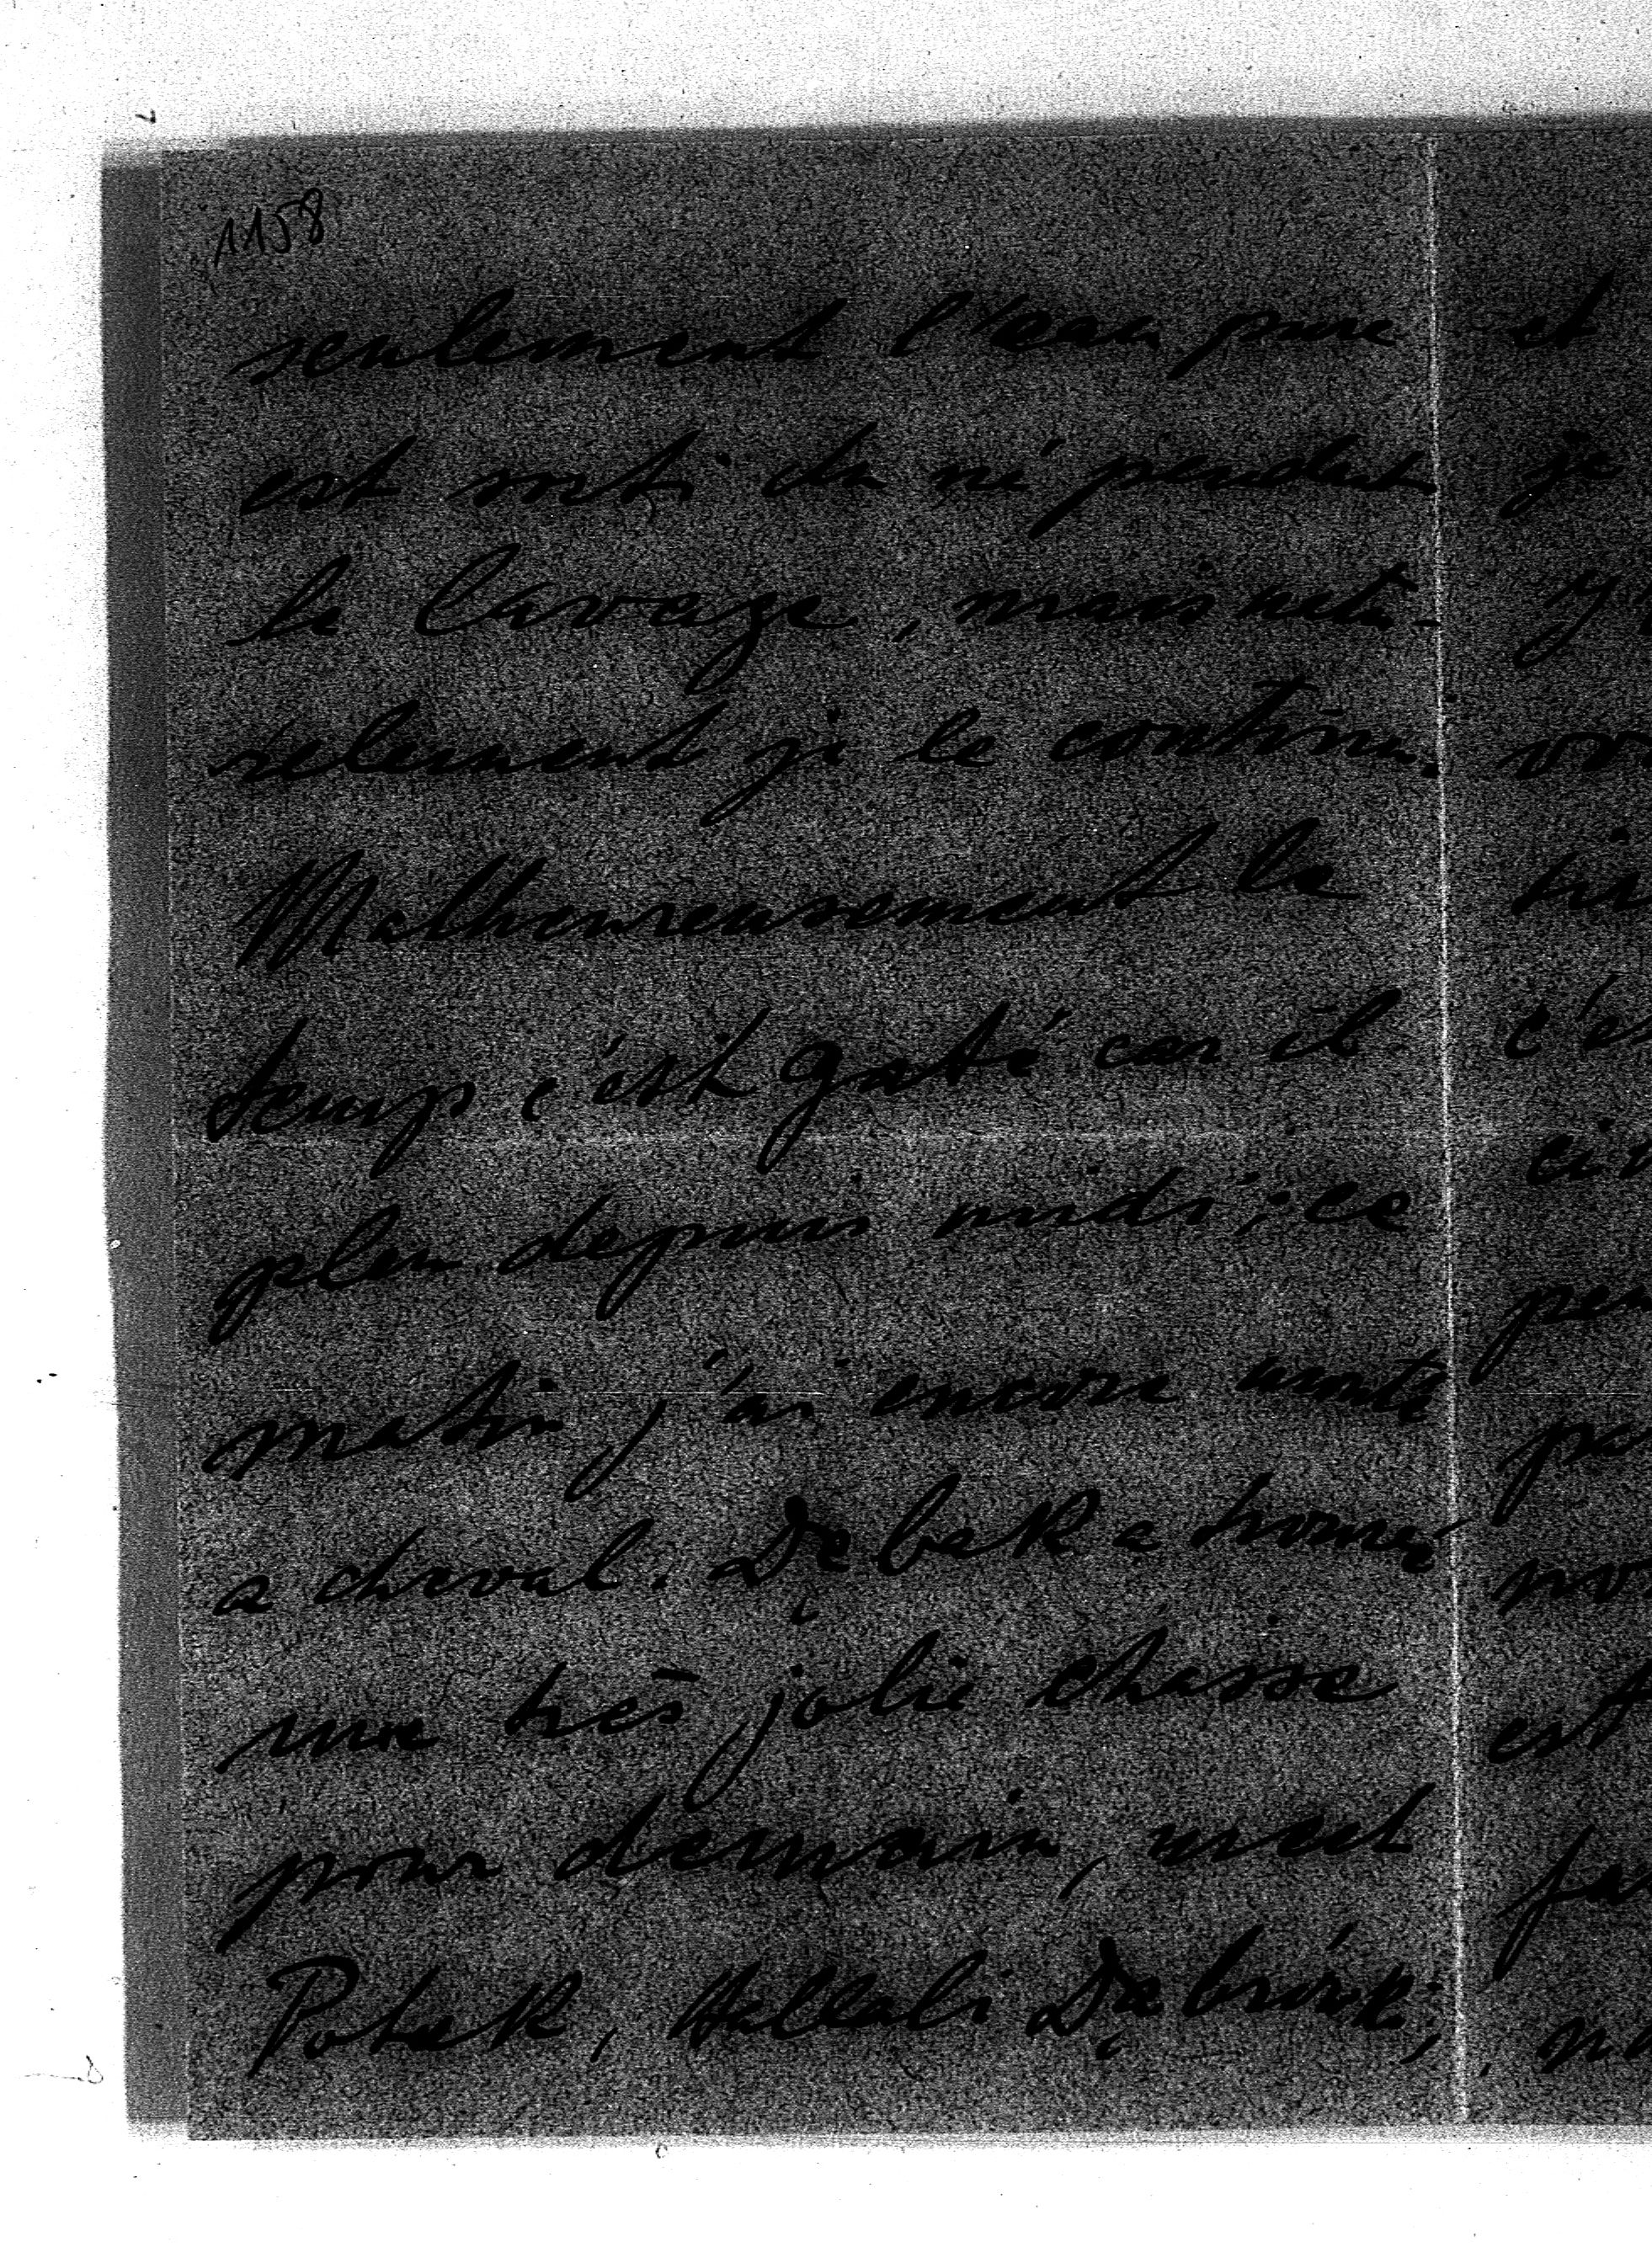 1158
seulement l'eau pure
est sorti du né pendant
le lavage, mais natu-
relement je le continu.
Malheureusement le
temp c'est gaté car il
pleu depuis midi; ce
matin j'ai encore monté
a cheval. Dębek a trouvé
une très jolie chasse
pour demain, meet
Potok, Hallali Dąbrówk;
et
je
c'es
est